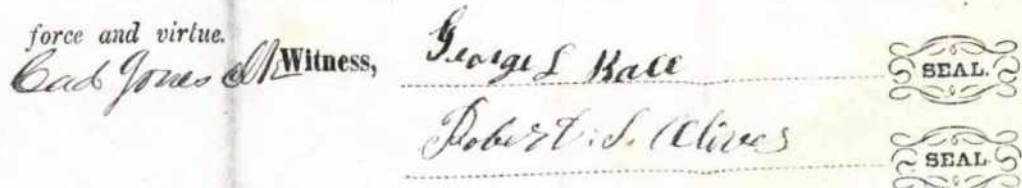 force and virtue.
Cad Jones Clk Witness, George L Hall SEAL.
Robert. S. SEAL